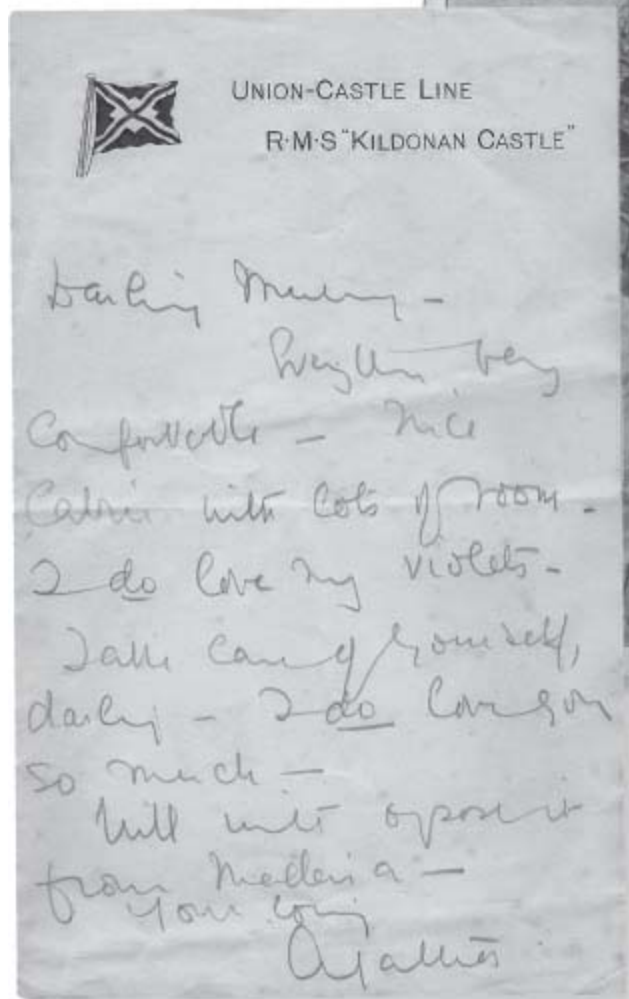 UNION-CASTLE LINE
R·M·S "KILDONAN CASTLE"
Darling Mummy –
Everything very
Comfortable – Nice
Cabin with lots of room –
I do love my violets –
Take care of yourself,
darling – I do love you
so much –
Will write &
from Madeira –
Your loving
Agatha